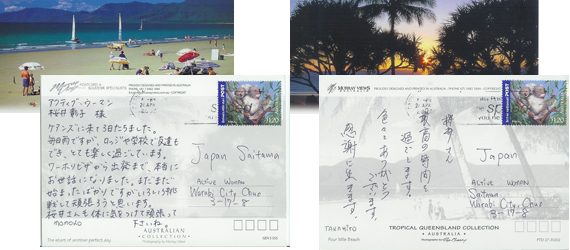 アクティブ・ウーマン
桜井 彰子 様
ケアンズに来て3日たちました。
毎日雨ですが、ロッジや学校で友達も
でき、とても楽しく過ごしています。
ワーホリビザから出発まで、本当に
お世話になりました。まだまだ
始まったばかりですがいろいろ挑
戦して頑張ろうと思います。
桜井さんも体に気をつけて頑張って
下さいね。
momoko
Japan Saitama
ACTIVE WOMAN
Warabi City Chuo
3-17-8
$1.20
AUSTRALIAN
COLLECTION
MURRAY VIEWS
桜井さん
最高の時間を
過ごしてます。
色々とありがとう
ございます。
感謝に生きます。
TAKAHIRO
Japan
ACTIVE WOMAN
Saitama
Warabi City Chuo
3-17-8
$1.20
TROPICAL QUEENSLAND COLLECTION
AUSTRALIA
Four Mile Beach